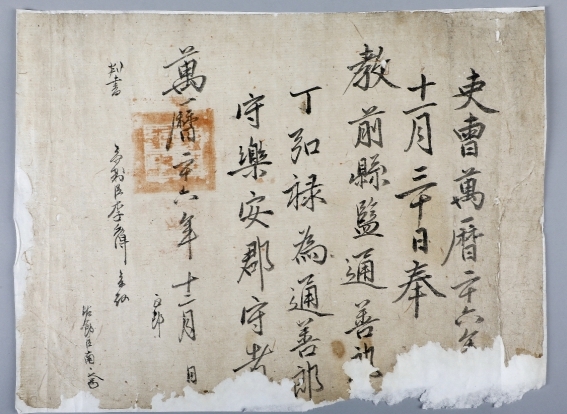 吏曹萬曆二十六年
十一月三十日奉
教前縣監通善郎
丁弘禄為通善郎
守樂安郡守者
萬曆二十六年十二月 日
判書
正郎